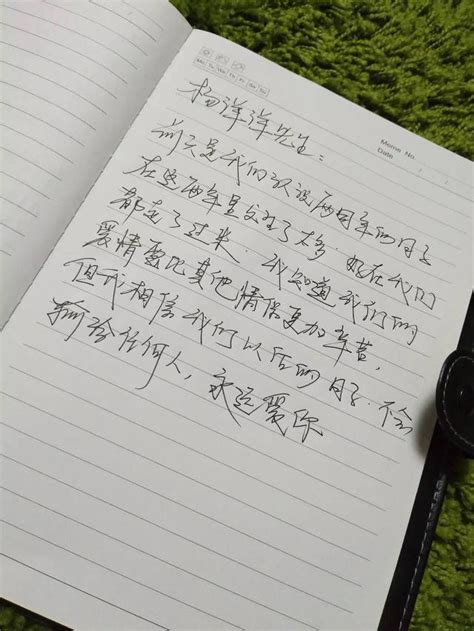 Mo Tu We Th Fr Sa Su
Memo No.
Date / /
杨洋洋先生：
前天是我们认识两周年的日子
在这两年里发生了太多，好在我们
都走了过来，我知道我们的
爱情要比其他情侣更加辛苦，
但我相信我们以后的日子，不会
输给任何人，永远爱你